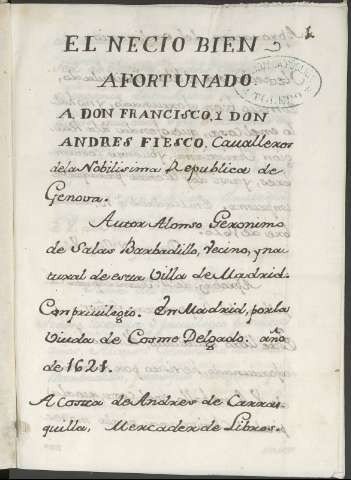 1
EL NECIO BIEN
AFORTUNADO
A DON FRANCISCO, Y DON
ANDRES FIESCO. Cavalleros
dela Nobilisima Republica de
Genova.
Autor Alonso Geronimo
de Salas Barbadillo, Vecino, y na-
tural de esta Villa de Madrid.
Con privilegio. En Madrid, por la
Viuda de Cosme Delgado. año
de 1621.
A Costa de Andres de Carras-
quilla, Mercader de Libros.